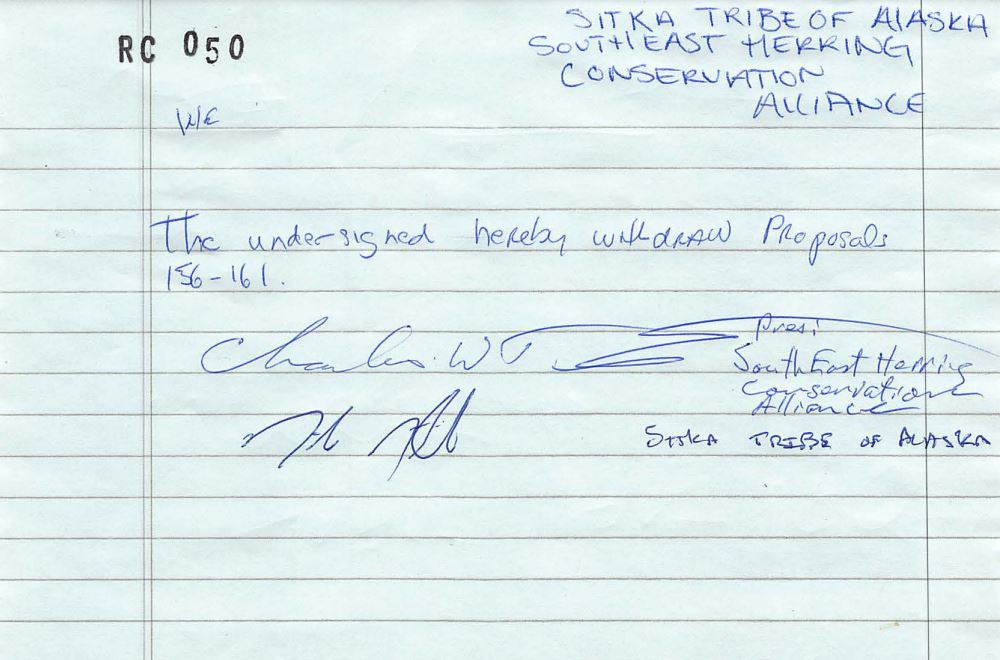 RC 050
SITKA TRIBE OF ALASKA
SOUTHEAST HERRING
CONSERVATION
ALLIANCE
WE
The undersigned hereby withdraw Proposals
156-161.
Charles W T
Pres:
SouthEast Herring
Conservation
Alliance
SITKA TRIBE OF ALASKA